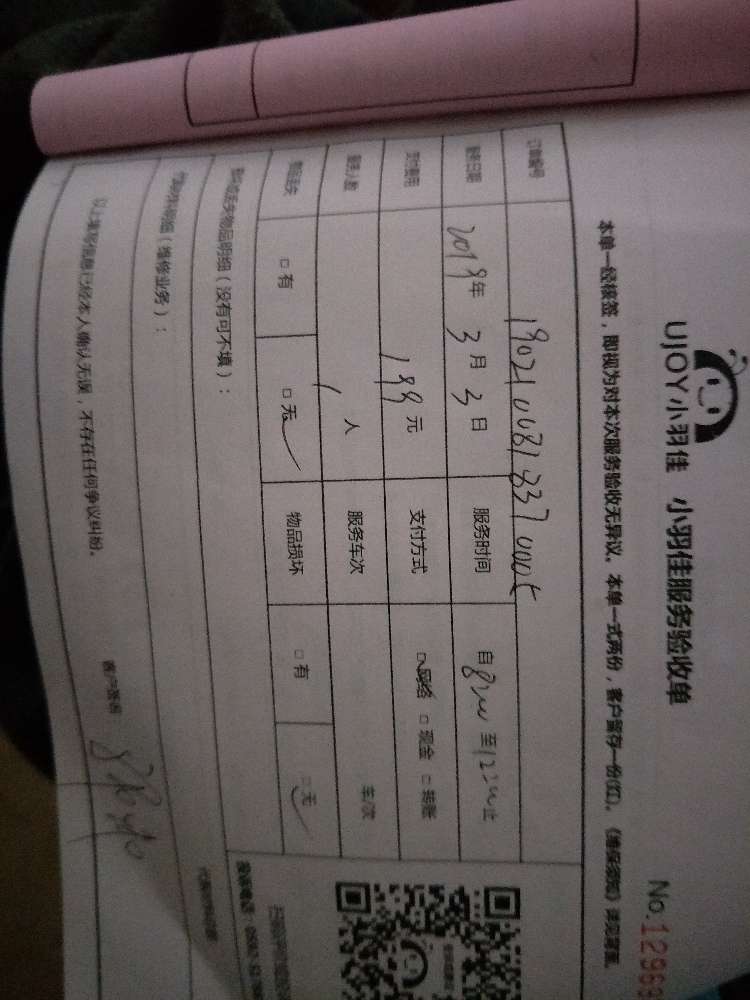 UJOY小羽佳 小羽佳服务验收单
No.12969
本单一经核签，即视为对本次服务验收无异议。本单一式两份，客户留存一份(红)。
订单编号
服务日期 2019年3月3日 服务时间 自8:00至12:00止
支付费用 199元 支付方式 □网络 □现金 □转账
服务人数 1人 服务车次 车/次
物品丢失 □有 □无 物品损坏 □有 □无
损坏或丢失物品明细（没有可不填）：
代购材料明细（维修业务）：
以上填写信息已经本人确认无误，不存在任何争议纠纷。
客户签名